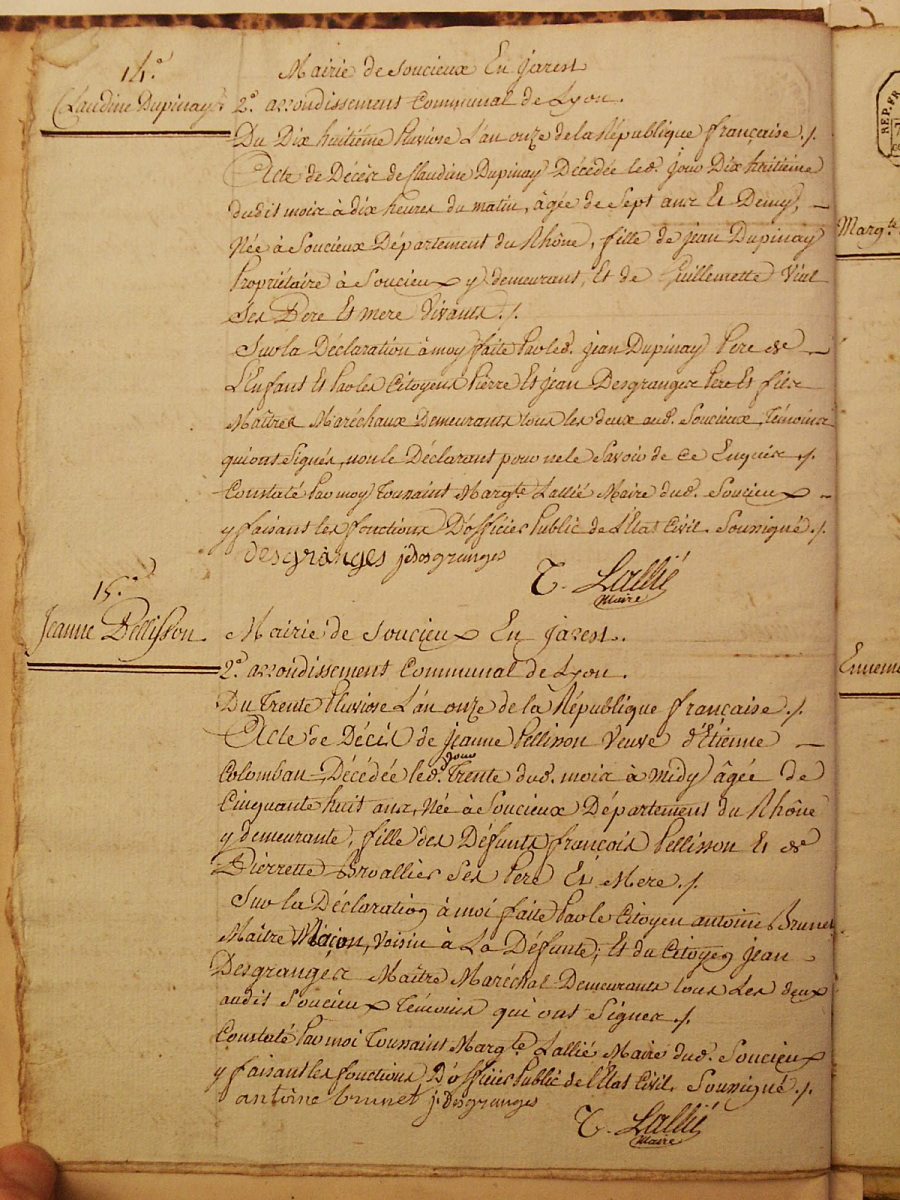 14.°
Claudine Dupinay
Mairie de Soucieux En Jarest
2.e arrondissement Communal de Lyon.
Du Dix huitième Pluviose L'an onze de la République française ./.
Acte de Décès de Claudine Dupinay Décédée led. jour Dix huitième
dudit mois à dix heures du matin, âgée de Sept ans Et Demy, —
Née à Soucieux Département du Rhône, fille de jean Dupinay
Propriétaire à Soucieux y demeurant, Et de Guillemette Vial
Ses Pere Et mere Vivants ./.
Sur la Déclaration à moy faite par led. jean Dupinay Pere de —
L'Enfant Et par les Citoyens Pierre Et jean Desgranges Pere Et fils
Maîtres Maréchaux Demeurants tous les deux aud. Soucieux, témoins
qui ont Signés, non le Déclarant pour ne le Savoir de ce Enquis ./.
Constaté Par moy Toussaint Margte. Lallié Maire dud. Soucieux —
y faisant les fonctions D'officier Public de L'Etat Civil Soussigné ./.
desgranges jDesgranges
T. Lallié
Maire
15.°
Jeanne Pellisson.
Mairie de Soucieux En Jarest.
2.e arrondissement Communal de Lyon.
Du Trente Pluviose L'an onze de la République française ./.
Acte de Décès de Jeanne Pellisson Veuve d'Etienne —
Colomban, Décédée led. jour Trente dud. mois à midy âgée de
Cinquante huit ans, Née à Soucieux Département du Rhône
y demeurante, fille des Défunts françois Pellisson Et de
Pierrette Ses Pere Et Mere ./.
Sur la Déclaration à moi faite Par le Citoyen antoine Brunet
Maître Maçon, Voisin à La Défunte, Et du Citoyen Jean
Desgranges Maître Maréchal Demeurants tous Les deux
audit Soucieux Témoins qui ont Signes ./.
Constaté Par moi Toussaint Margte. Lallié Maire dud. Soucieux
y faisant les fonctions D'officier Public de l'Etat Civil Soussigné ./.
antoine brunet j. Desgranges
T. Lallié
Maire
REP. FR
Marg.te
Ennem